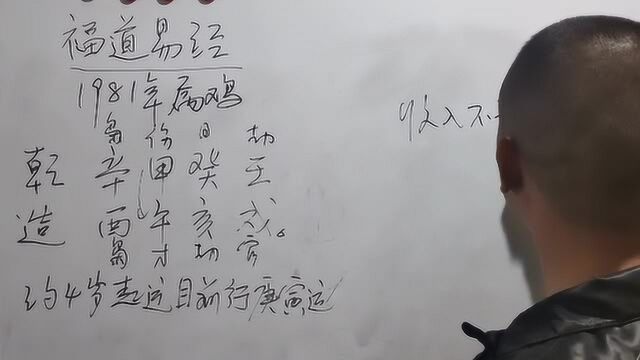 福道易经
1981年属鸡
收入不
枭 伤 日 劫
乾 辛 甲 癸 壬
造 酉 午 亥 戌。
枭 才 劫 官
约4岁起运目前行庚寅运